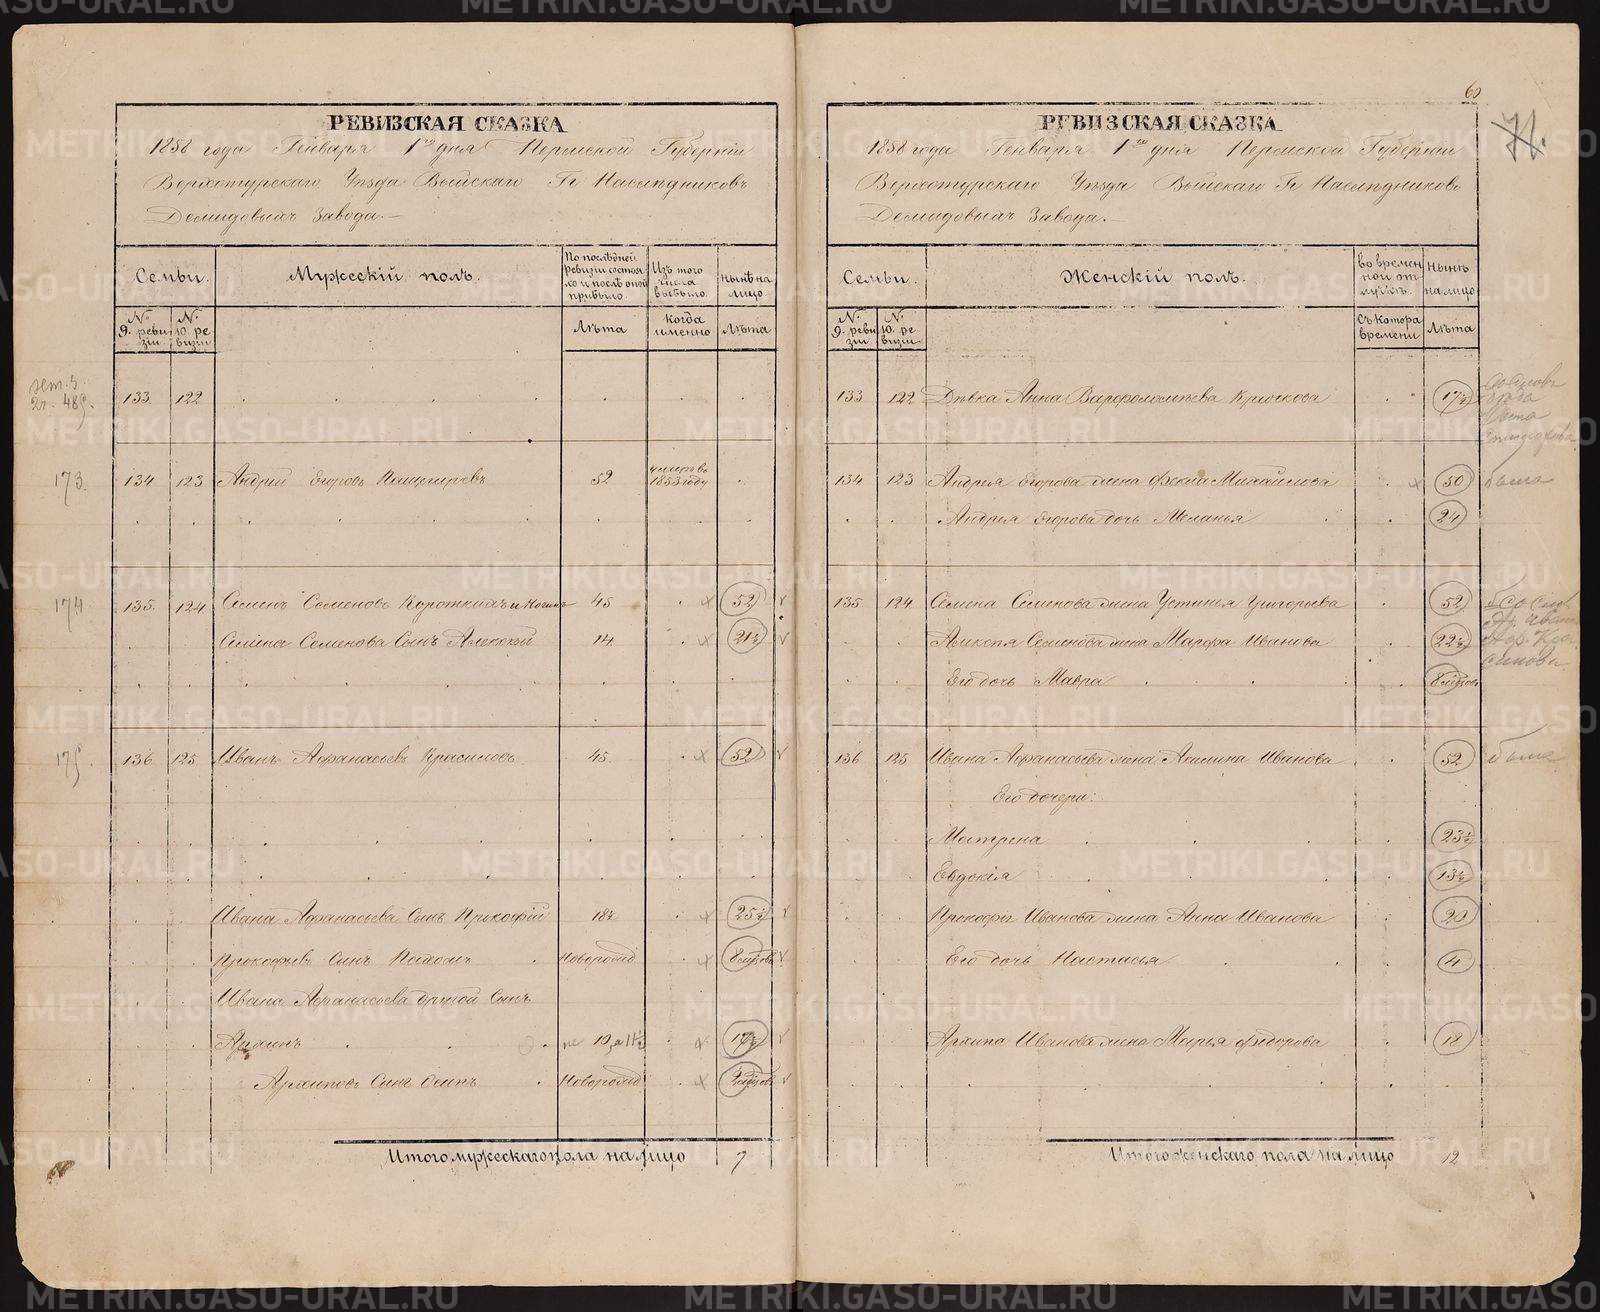 60
71.
РЕВИЗСКАЯ СКАЗКА
1858 года Генваря 1го дня Пермской Губерніи
Верхотурскаго Уѣзда Выйскаго Гг Наслѣдниковъ
Демидовыхъ Завода.
Семьи. Мужескій полъ. По послѣдней ревизіи состояло и послѣ оной прибыло. Изъ того числа выбыло. нынѣ на лицо.
№ 9. ревизіи № 10. ревизіи Лѣта Когда именно Лѣта
133 122
173. 134 123 Андрей Егоровъ 52 умеръ въ 1853 году
174 135. 124 Семенъ Семеновъ Короткихъ и Ногинъ 45 52
Семена Семенова Сынъ Алексѣй 14 21½
175. 136 125 Иванъ Афанасьевъ Красиловъ 45 52
Ивана Афанасьева Сынъ Прокофій 18½ 25½
Прокофьевъ Сынъ Пахомъ Новорожд 8 мѣсяцов
Ивана Афанасьева другой Сынъ
Архипъ 10
Архиповъ Сынъ Осипъ Новорожд 2 мѣсяцов
Итого мужескаго пола на лицо 7
РЕВИЗСКАЯ СКАЗКА
1858 года Генваря 1го дня Пермской Губерніи
Верхотурскаго Уѣзда Выйскаго Гг Наслѣдниковъ
Демидовыхъ Завода.
Семьи. Женскій полъ. во временной отлучкѣ. Нынѣ на лицо.
№ 9. ревизіи № 10. ревизіи Съ котора времени Лѣта
133 122 Дѣвка Анна Варфоломѣева Крючкова 17½
134 123 Андрея Егорова жена Михайлова 50 была
Андрея Егорова дочь Меланья 24
135 124 Семена Семенова жена Устинья Григорьева 52
Алексѣя Семенова жена Марфа Иванова 22½
Его дочь Мавра 8 мѣсяцов
136 125 Ивана Афанасьева жена Акилина Иванова 52 была
Его дочери:
Матрена 23½
Евдокія 13½
Прокофья Иванова жена Анна Иванова 20
Его дочь Настасья 4
Архипа Иванова жена Марья Ѳедорова 18
Итого женскаго пола на лицо 12
METRIKI.GASO-URAL.RU